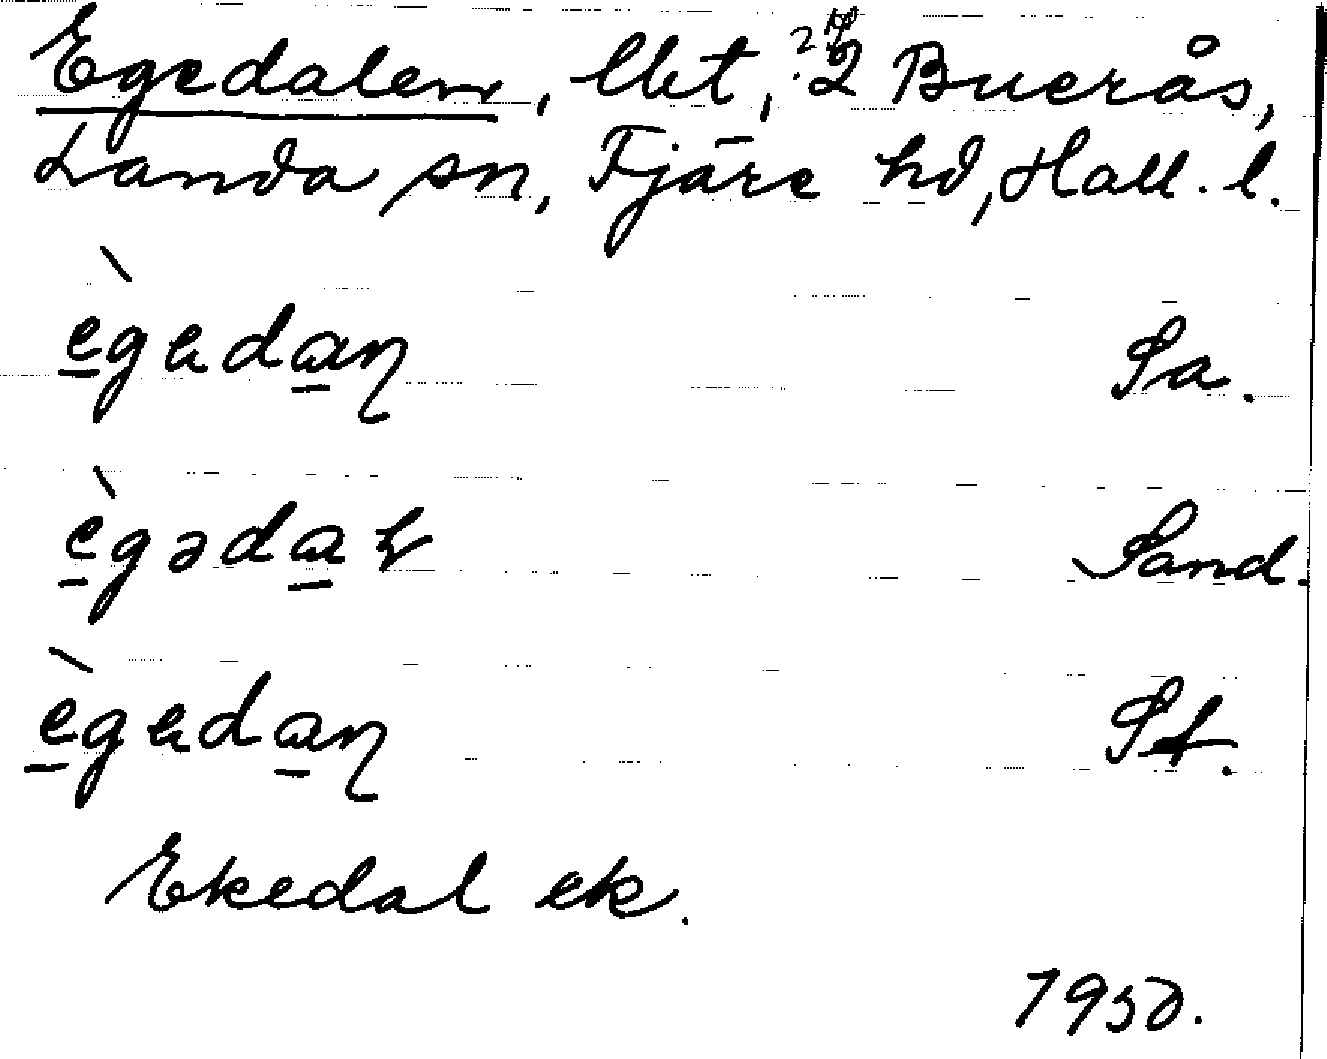 Egedalen, lht, 2 Buerås,
Landa sn, Fjäre hd, Hall. l.
ègedaɳ Sa.
ègədaɽ Sand.
ègedaɳ St.
Ekedal ek.
1950.